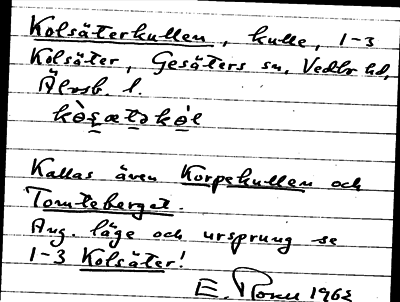 Kolsäterkullen, kulle, 1-3
Kolsäter, Gesäters sn, Vedbo hd,
Älvsb. l.
Kallas även Korpekullen och
Tomteberget.
Ang. läge och ursprung se
1-3 Kolsäter!
E. 1962